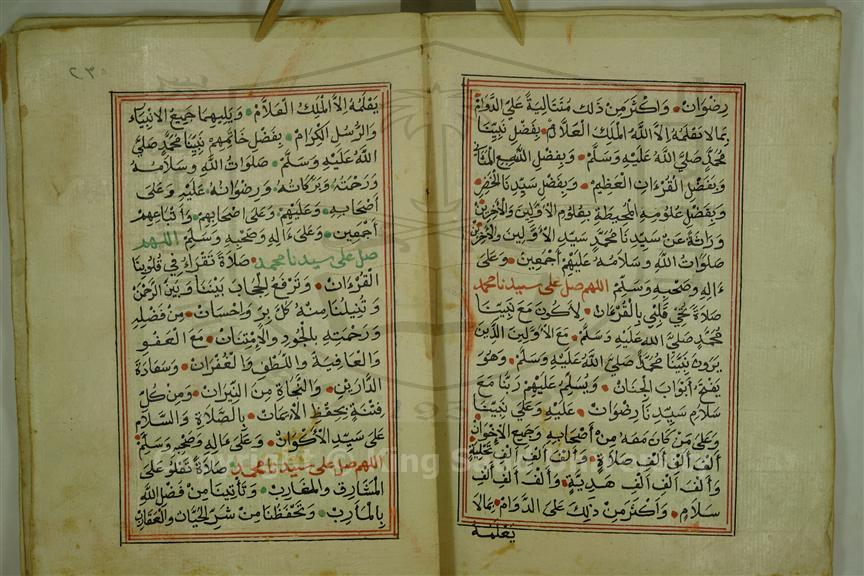 رضوان وأكثر من ذلك متتالية على الدوام
بما لا يعلمه إلا الله الملك العلام بفضل نبينا
محمد صلى الله عليه وسلم وبفضل السبع المثاني
وبفضل القرءان العظيم وبفضل سيدنا الخضر
وبفضل علومه المحيطة بعلوم الأولين والآخرين
وراثة عن سيدنا محمد سيد الأولين والآخرين
صلوات الله وسلامه عليهم أجمعين وعلى
ءاله وصحبه وسلم اللهم صل على سيدنا محمد
صلاة تحيي قلبي بالقرءان لأكون مع نبينا
محمد صلى الله عليه وسلم مع الأولين الذين
يرون نبينا محمد صلى الله عليه وسلم وهو
يفتح أبواب الجنان ويسلم عليهم ربنا مع
سلام سيدنا رضوان عليه وعلى نبينا
وعلى من كان معه من أصحابه وجميع الإخوان
ألف ألف ألف صلاة وألف ألف ألف تحية
وألف ألف ألف هدية وألف ألف ألف
سلام وأكثر من ذلك على الدوام بما لا
يعلمه
٢٣٥
يعلمه إلا الملك العلام ويليهما جميع الأنبياء
والرسل الكرام بفضل خاتمهم نبينا محمد صلى
الله عليه وسلم صلوات الله وسلامه
ورحمته وبركاته ورضوانه عليه وعلى
أصحابه وعليهم وعلى أصحابهم وأتباعهم
أجمعين وعلى ءاله وصحبه وسلم اللهم
صل على سيدنا محمد صلاة تقراء في قلوبنا
القرءان وترفع الحجاب بيننا وبين الرحمن
وتنيلنا منه كل بر وإحسان من فضله
ورحمته بالجود والإمتنان مع العفو
والعافية واللطف والغفران وسعادة
الدارين والنجاة من النيران ومن كل
فتنة بحفظ الأيمان بالصلاة والسلام
على سيد الأكوان وعلى ءاله وصحبه وسلم
اللهم صل على سيدنا محمد صلاة تعلو على
المشارق والمغارب وتأتينا من فضل الله
بالمأرب وتحفظنا من شر الحيات والعقارب